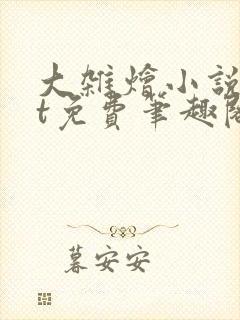 大雜燴小說
t免費筆趣閣
暮安安